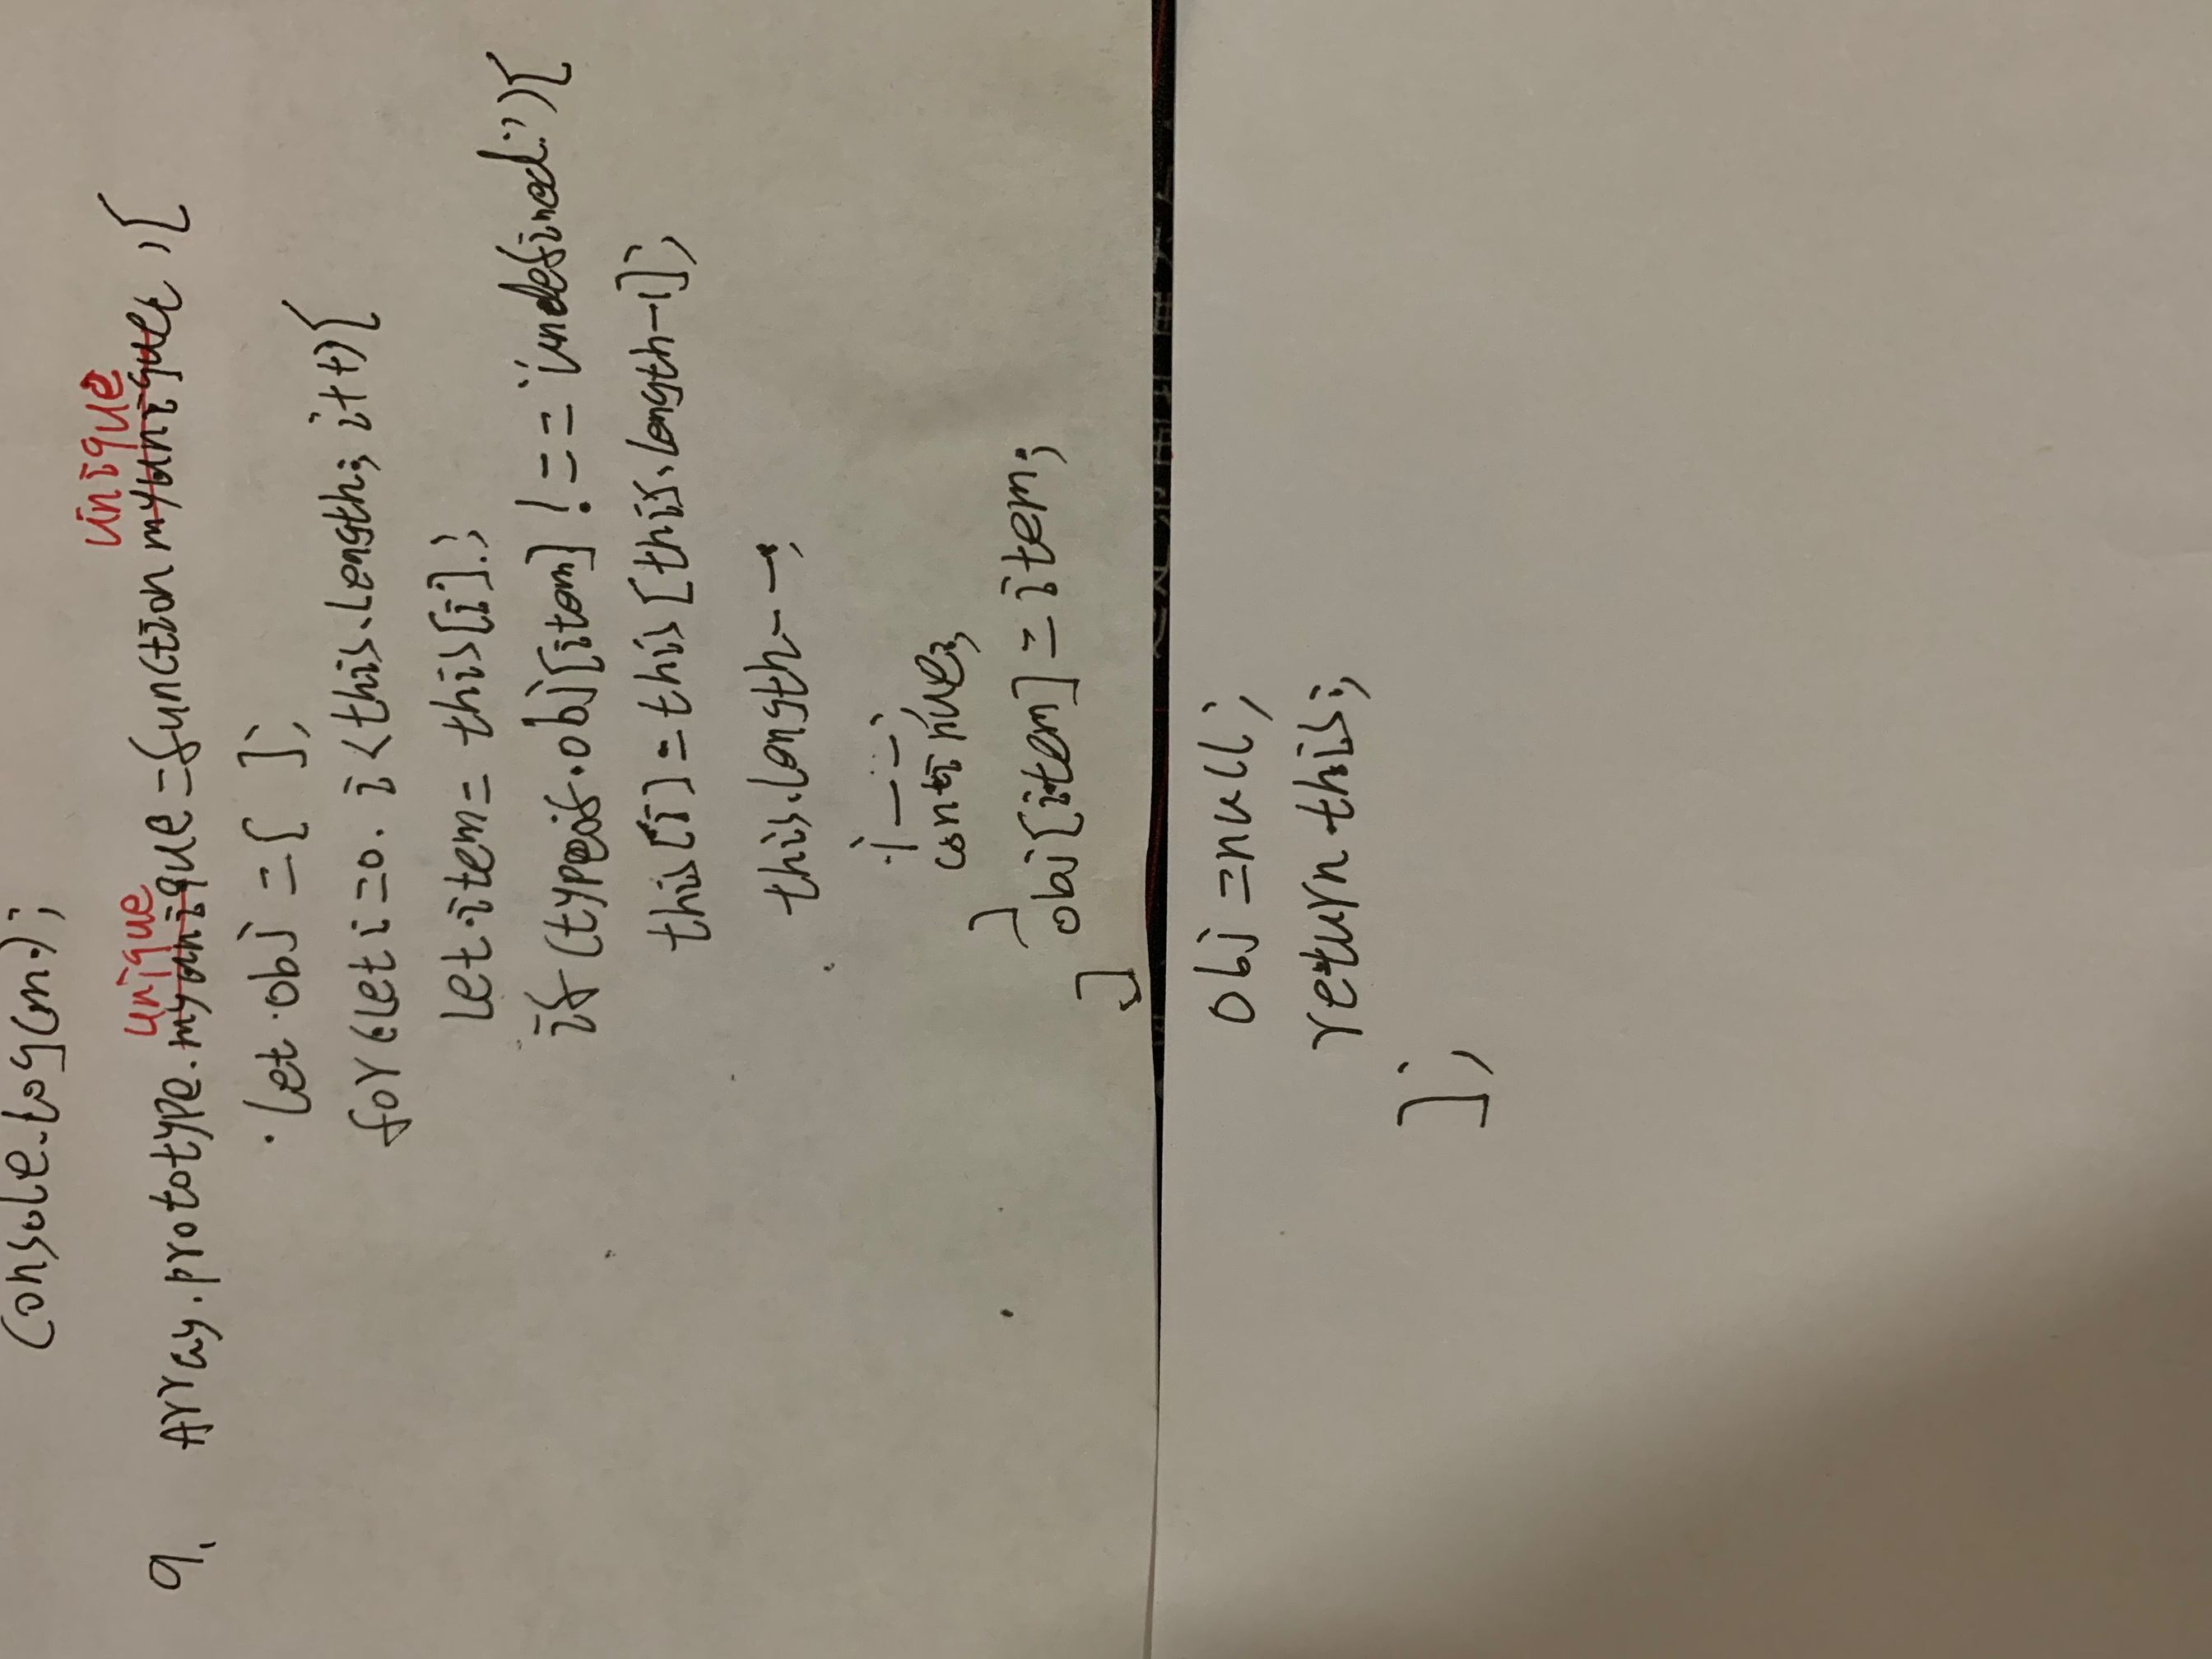 console.log(m);
unique unique
9. Array.prototype.myunique = function myunique () {
let obj = { };
for (let i=0. i<this.length; i++){
let item = this[i];
if (typeof obj[item] !== 'undefined'){
this[i]=this[this.length-1];
this.length--;
i--;
continue;
}
obj[item]=item;
}
obj=null;
return this;
};